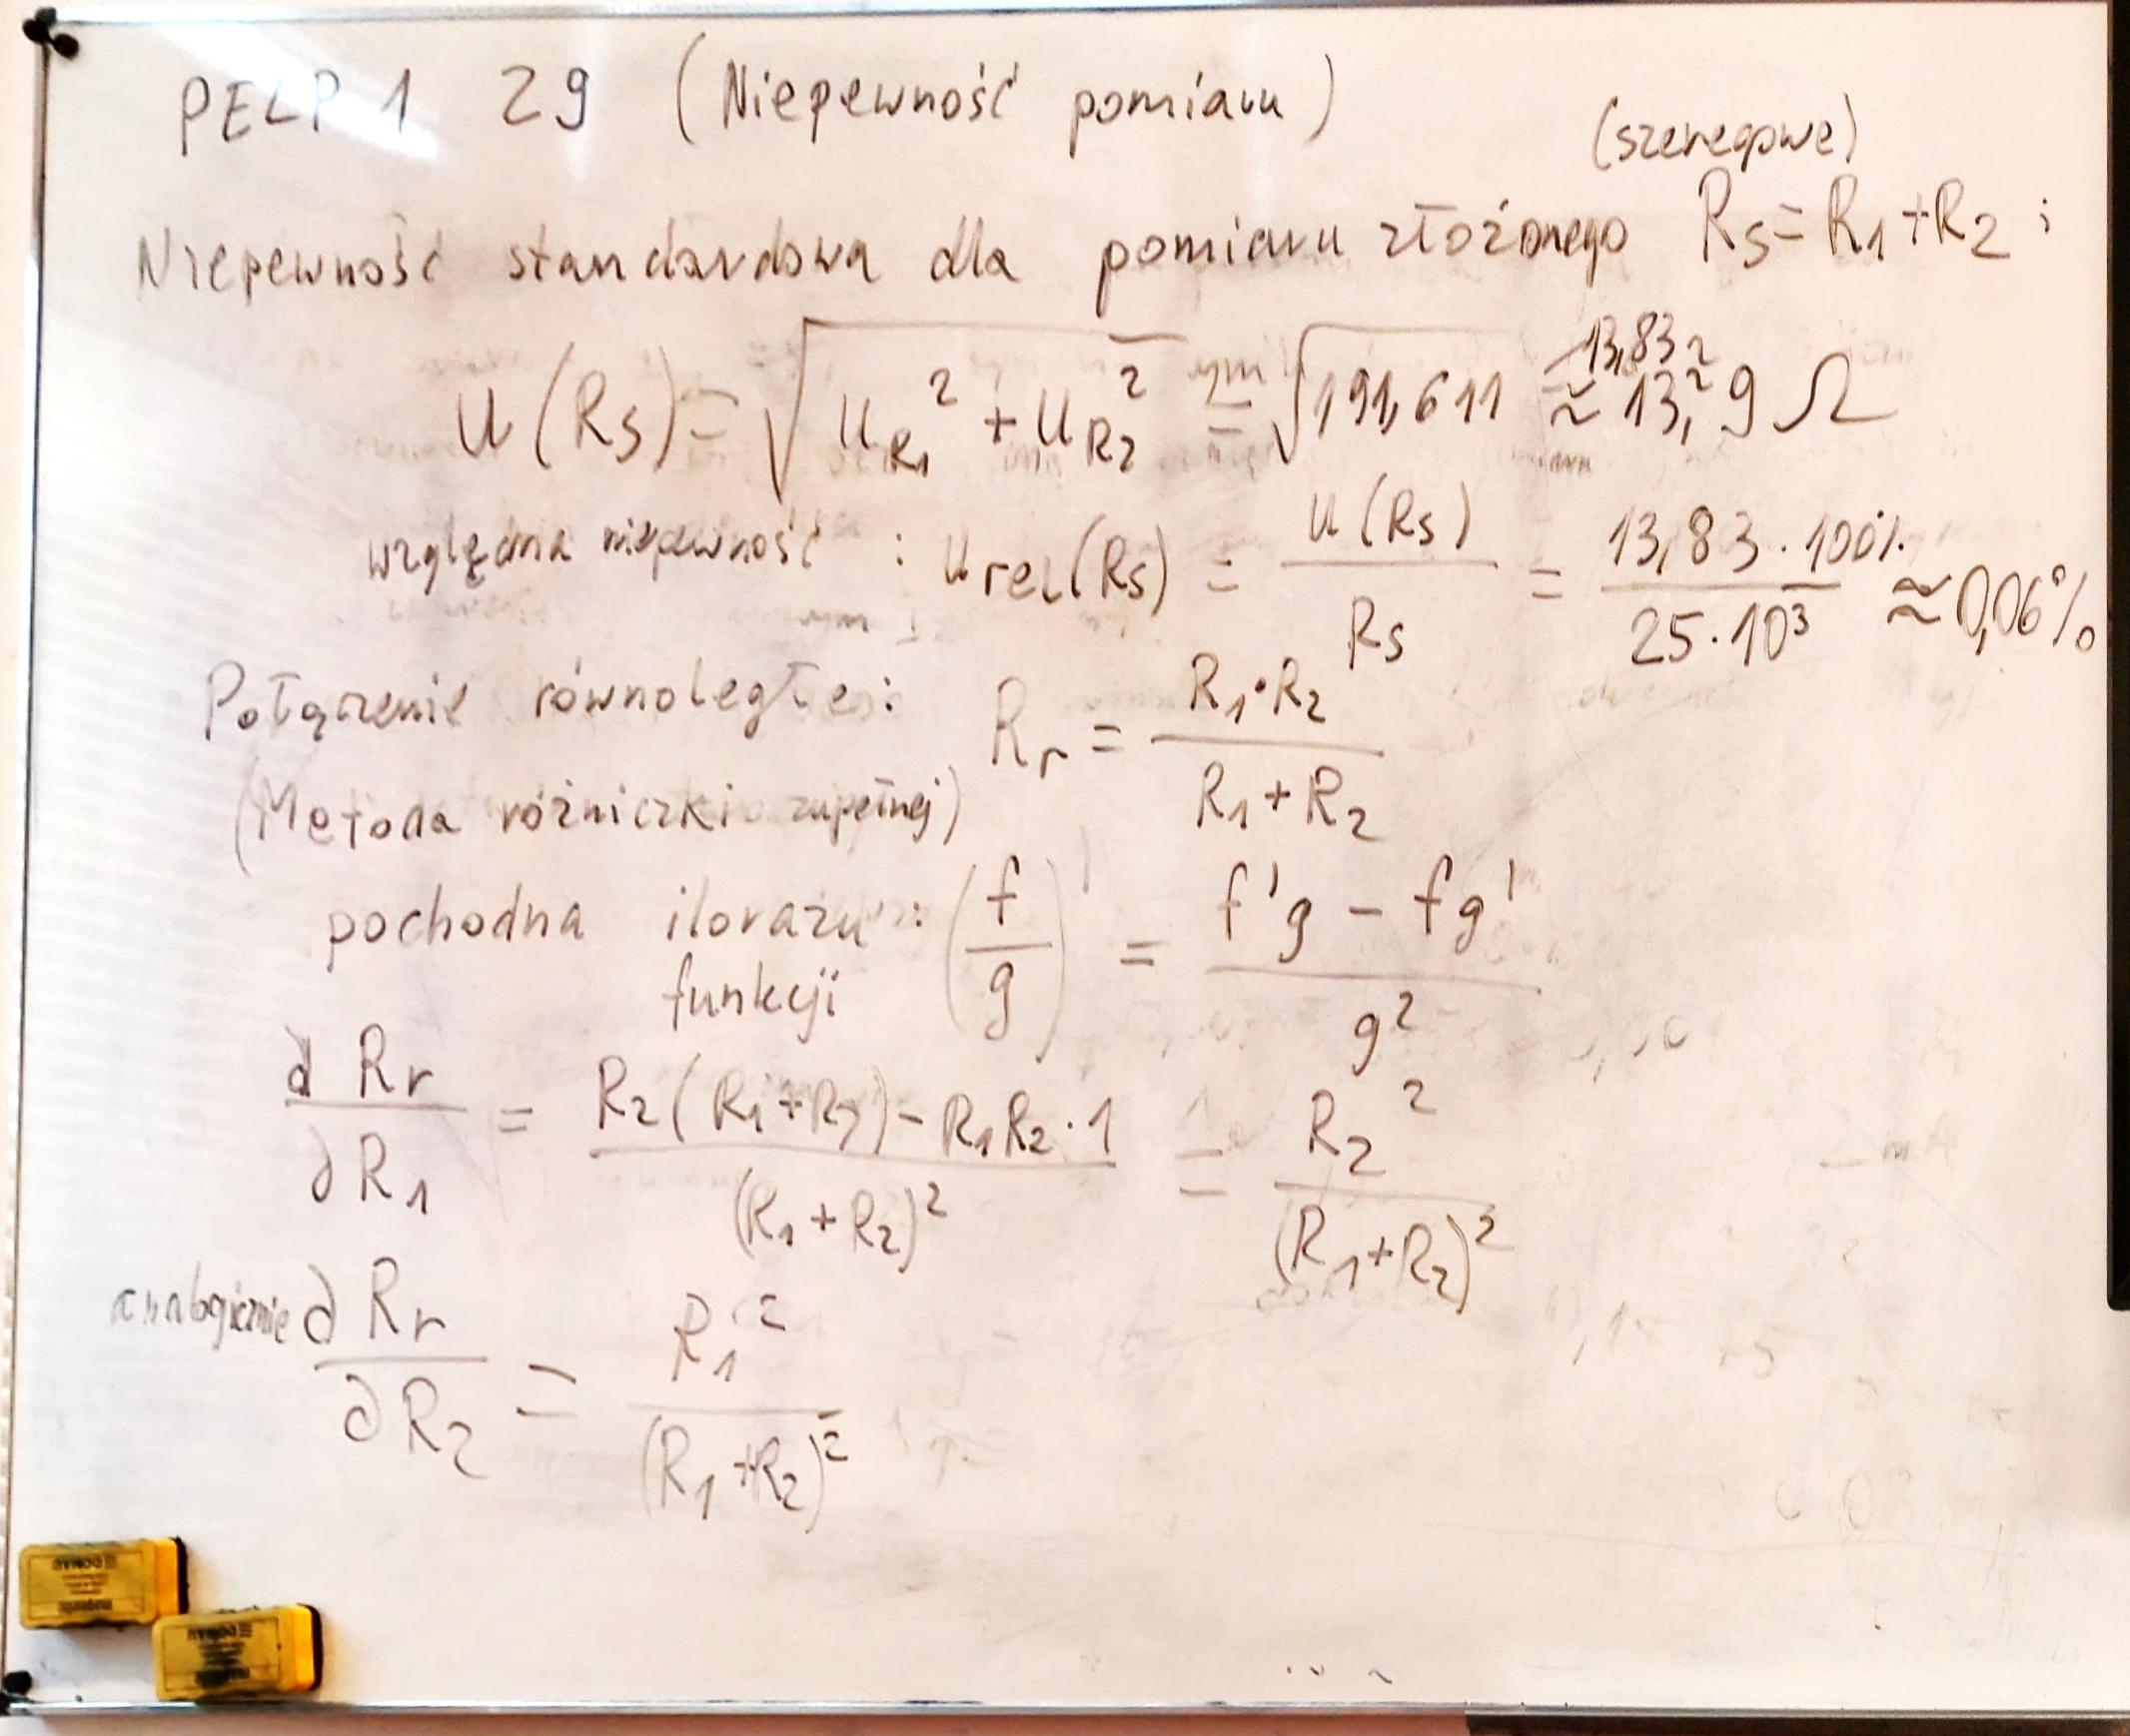 PELP 1 29 (Niepewność pomiaru)
(szeregowe)
Niepewność standardowa dla pomiaru złożonego Rs = R1 + R2 :
u(Rs) = √(uR1² + uR2²) = √191,611 ≈ 13,83 ≈ 13,9 Ω
względna niepewność : urel(Rs) = u(Rs) / Rs = 13,83 · 100% / 25 · 10³ ≈ 0,06%
Połączenie równoległe: Rr = R1 · R2 / R1 + R2
(Metoda różniczki zupełnej)
pochodna ilorazu funkcji : (f / g)' = f'g − fg' / g²
∂Rr / ∂R1 = R2(R1+R2) − R1R2 · 1 / (R1+R2)² = R2² / (R1+R2)²
analogicznie ∂Rr / ∂R2 = R1² / (R1+R2)²
DONAU
magnetic
DONAU